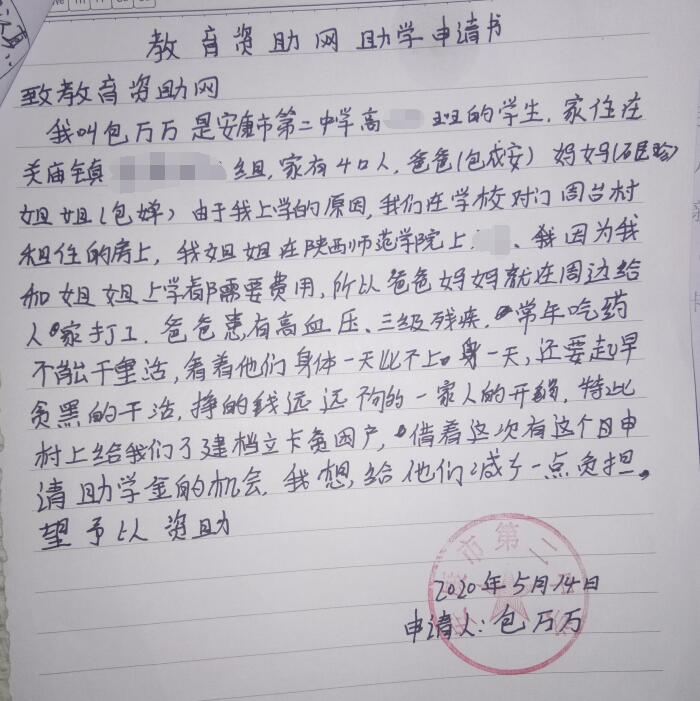 教育资助网助学申请书
致教育资助网
我叫包万万是安康市第二中学高 班的学生，家住在
关庙镇 组，家有4口人，爸爸（包成安）妈妈（石医珍）
姐姐（包婵）由于我上学的原因，我们在学校对门周台村
租住的房上，我姐姐在陕西师范学院上 、我因为我
和姐姐上学都需要费用，所以爸爸妈妈就在周边给
人家打工．爸爸患有高血压、三级残疾．常年吃药
不能干重活，看着他们身体一天比不上身一天，还要起早
贪黑的干活，挣的钱远远不够的一家人的开销，特此
村上给我们了建档立卡贫困户，借着这次有这个日申
请助学金的机会，我想，给他们减少一点负担。
望予以资助
2020年5月14日
申请人：包万万
市第二